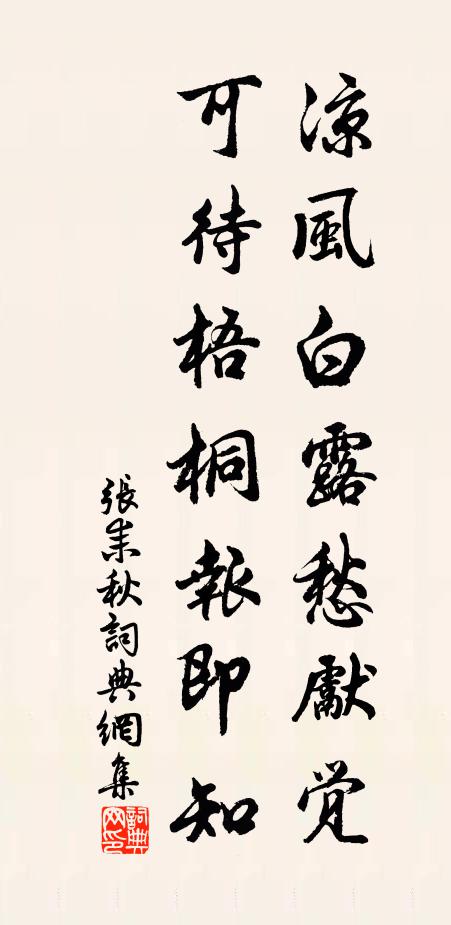 涼風白露愁獻觉
可待梧桐報即知
張耒秋詞典網集
詞典網印